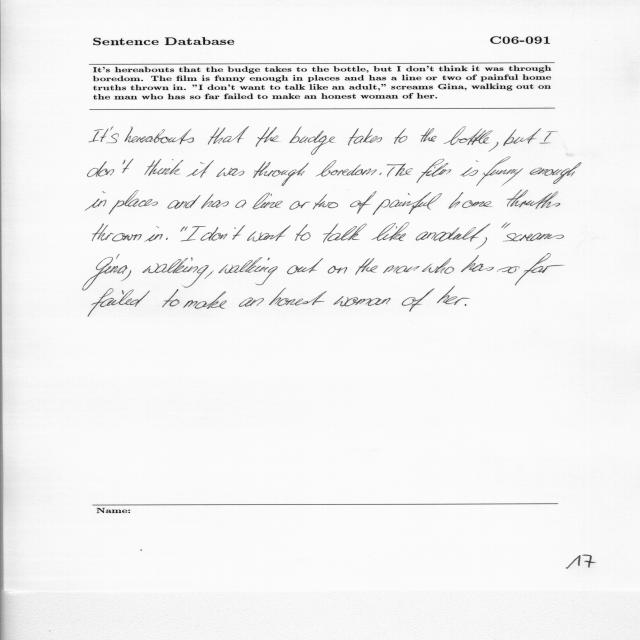 Sentence Database C06-091
It's hereabouts that the budge takes to the bottle, but I don't think it was through
boredom. The film is funny enough in places and has a line or two of painful home
truths thrown in. "I don't want to talk like an adult," screams Gina, walking out on
the man who has so far failed to make an honest woman of her.
It's hereabouts that the budge takes to the bottle, but I
don't think it was through boredom. The film is funny enough
in places and has a line or two of painful home thruths
thrown in. "I don't want to talk like anadult," screams
Gina, walking, walking out on the man who has so far
failed to make an honest woman of her.
Name:
17